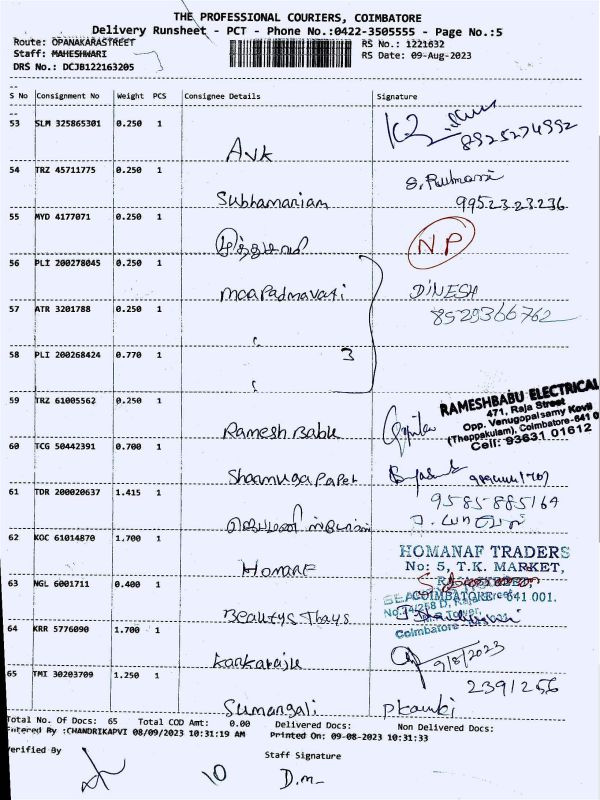 THE PROFESSIONAL COURIERS, COIMBATORE
Delivery Runsheet - PCT - Phone No.:0422-3505555 - Page No.:5
Route: OPANAKARASTREET
RS No.: 1221632
Staff: MAHESHWARI
RS Date: 09-Aug-2023
DRS No.: DCJB122163205
S No Consignment No Weight PCS Consignee Details Signature
53 SLM 325865301 0.250 1
8925274992
AVK
54 TRZ 45711775 0.250 1
Subramaniam
9952323236
55 MYD 4177071 0.250 1
N.P
56 PLI 200278045 0.250 1
Maa Padmavati
DINESH
57 ATR 3201788 0.250 1
8529366762
58 PLI 200268424 0.770 1
3
59 TRZ 61005562 0.250 1
RAMESHBABU ELECTRICAL
471, Raja Street
Opp. Venugopalsamy Kovil
(Theppakulam), Coimbatore-641 0
Cell: 93631 01612
Ramesh Babu
60 TCG 50442391 0.700 1
Shanmuga Paper
61 TDR 200020637 1.415 1
9585885164
62 KOC 61014870 1.700 1
HOMANAF TRADERS
No: 5, T.K. MARKET,
COIMBATORE - 641 001.
63 NGL 6001711 0.400 1
Coimbatore
Beautys Thays
64 KRR 5776090 1.700 1
9/8/2023
Kankaraju
65 TMI 30203709 1.250 1
2391256
Sumangali
Total No. Of Docs: 65 Total COD Amt: 0.00 Delivered Docs: Non Delivered Docs:
Entered By :CHANDRIKAPVI 08/09/2023 10:31:19 AM Printed On: 09-08-2023 10:31:33
Verified By
Staff Signature
10
D.m